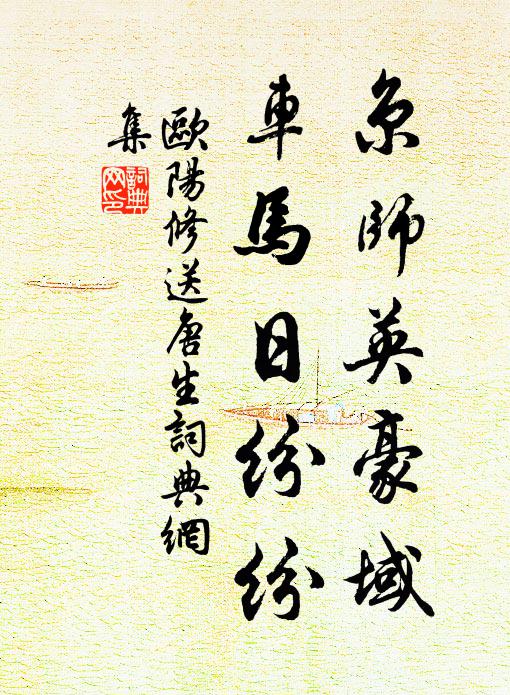 京師英豪域
車馬日紛紛
歐陽修送唐生詞典網
集
詞典
网印